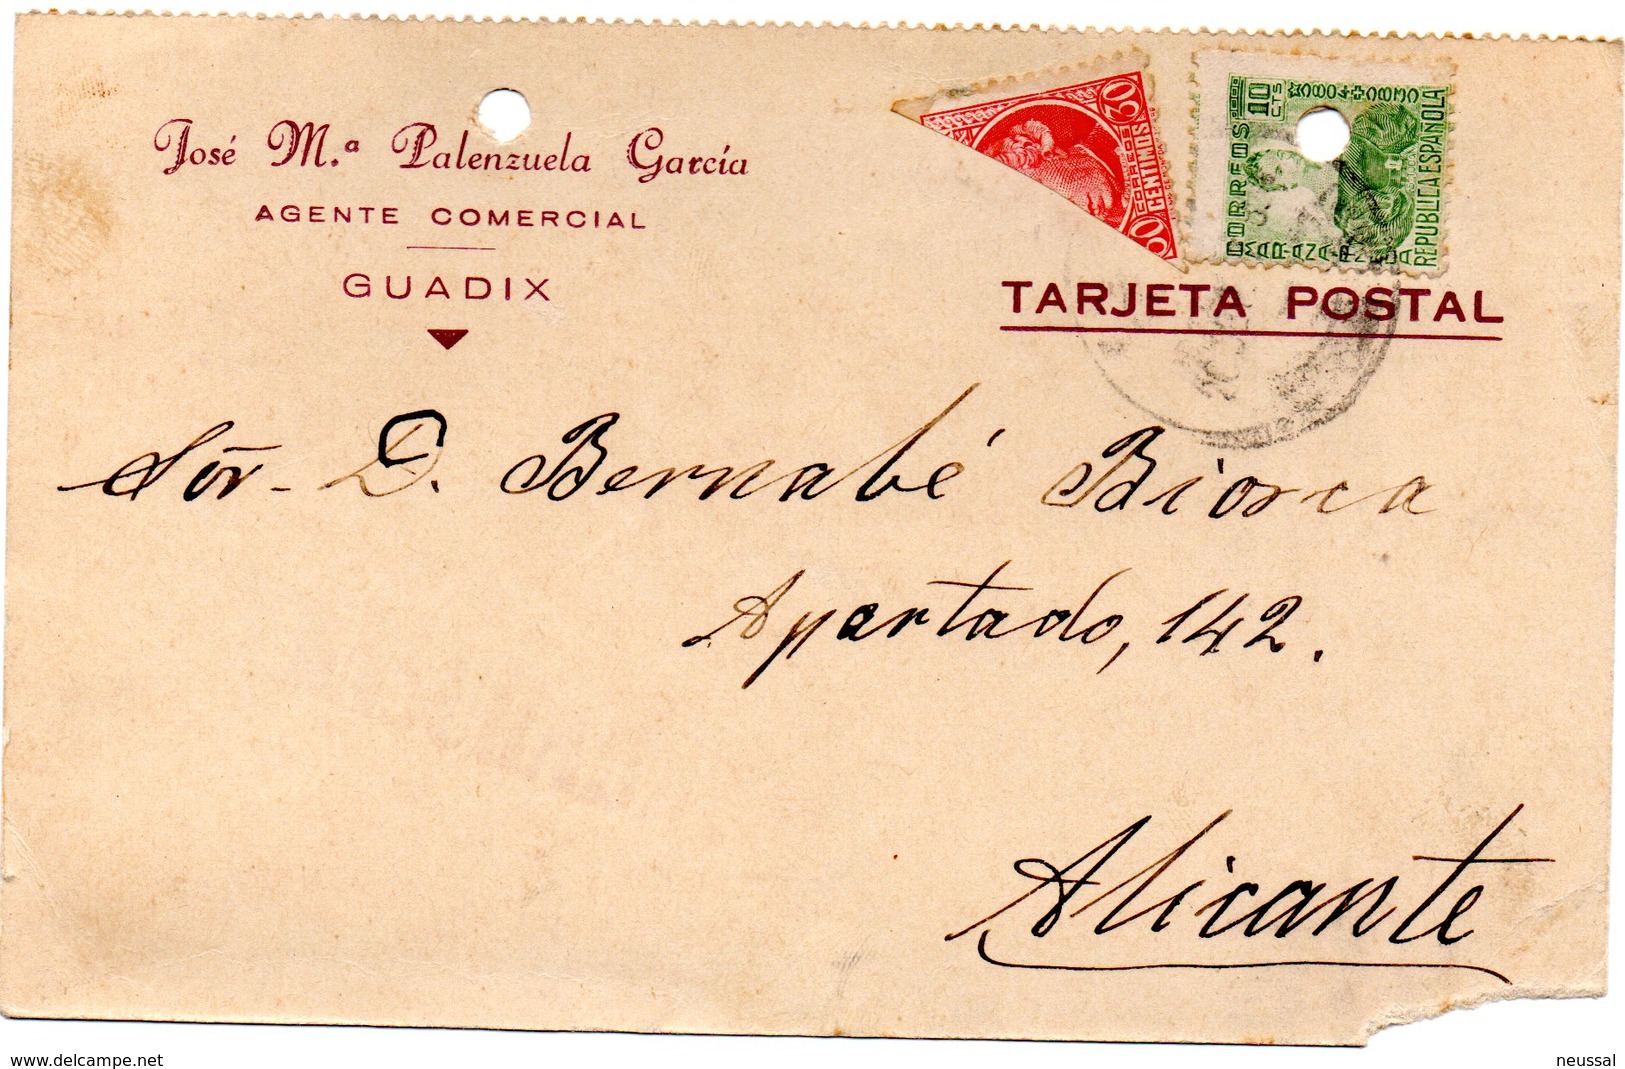 José M.ª Palenzuela García
AGENTE COMERCIAL
GUADIX
30 CORREOS 30
CENTIMOS
CORREOS 10 CTS
MARIANA PINEDA
1804+1831
REPUBLICA ESPAÑOLA
TARJETA POSTAL
Sör. D. Bernabé Biosca
Apartado, 142.
Alicante
www.delcampe.net
neussal